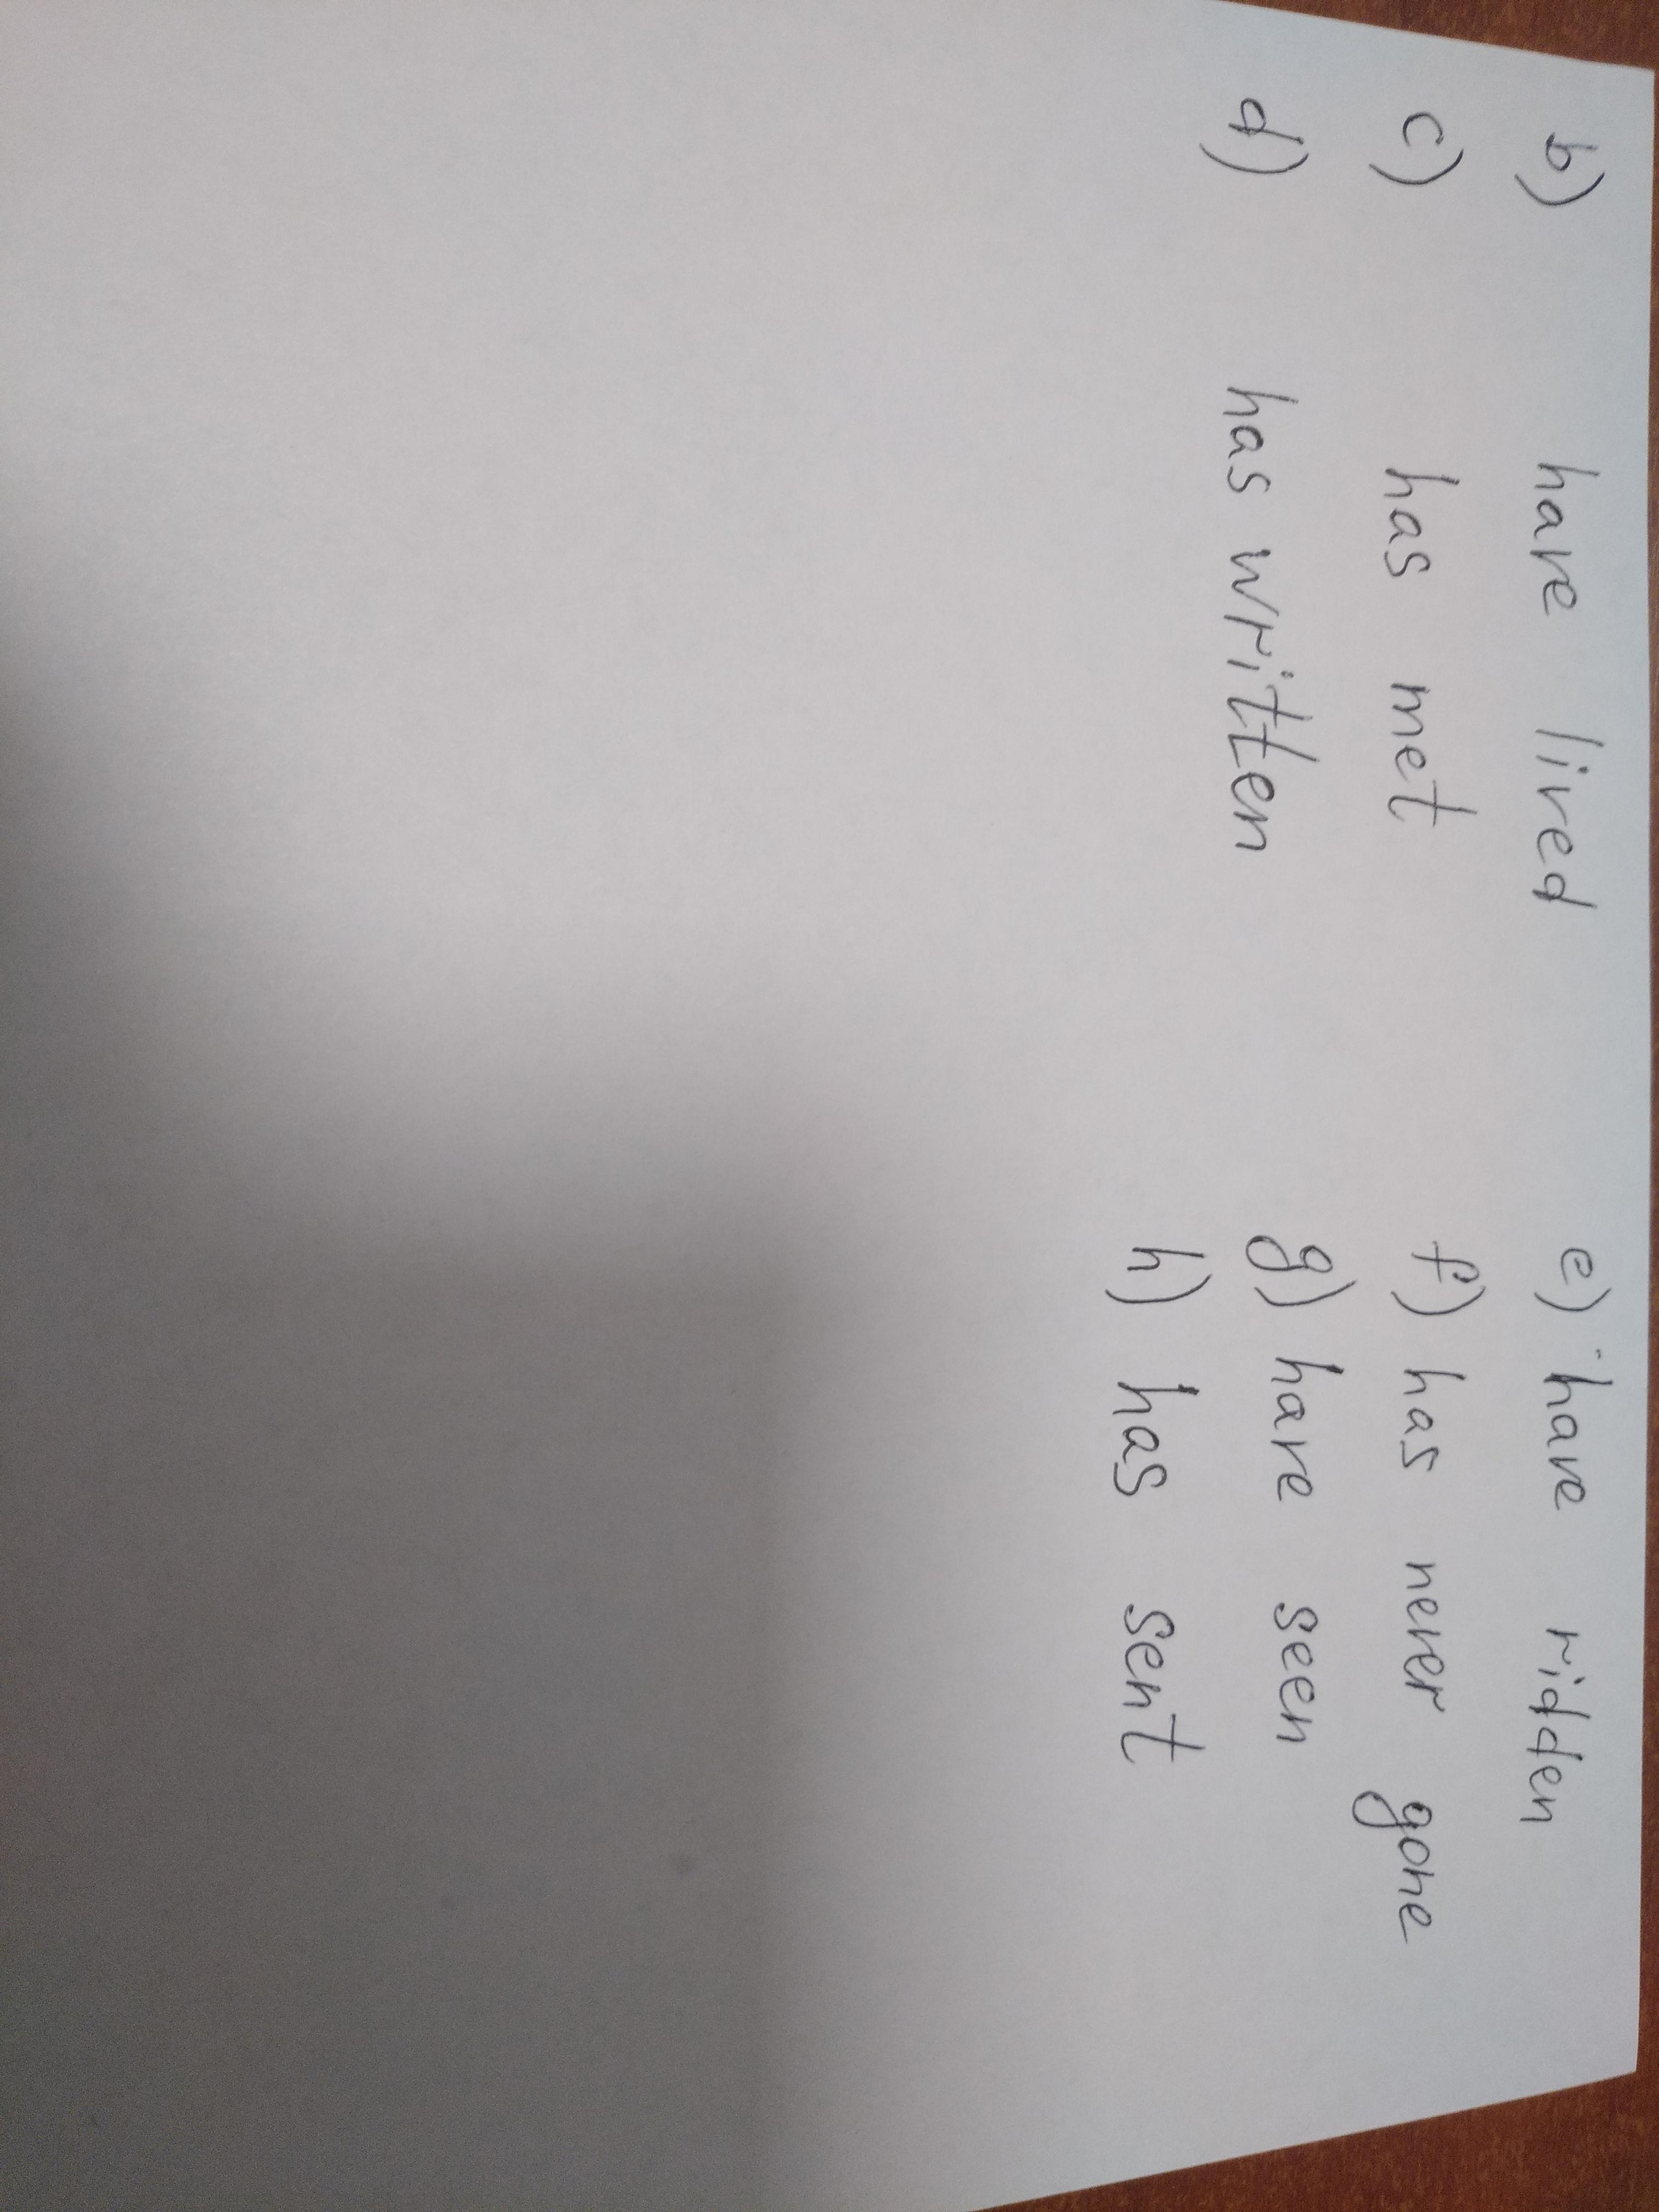 b) have lived
c) has met
d) has written
e) have ridden
f) has never gone
g) have seen
h) has sent